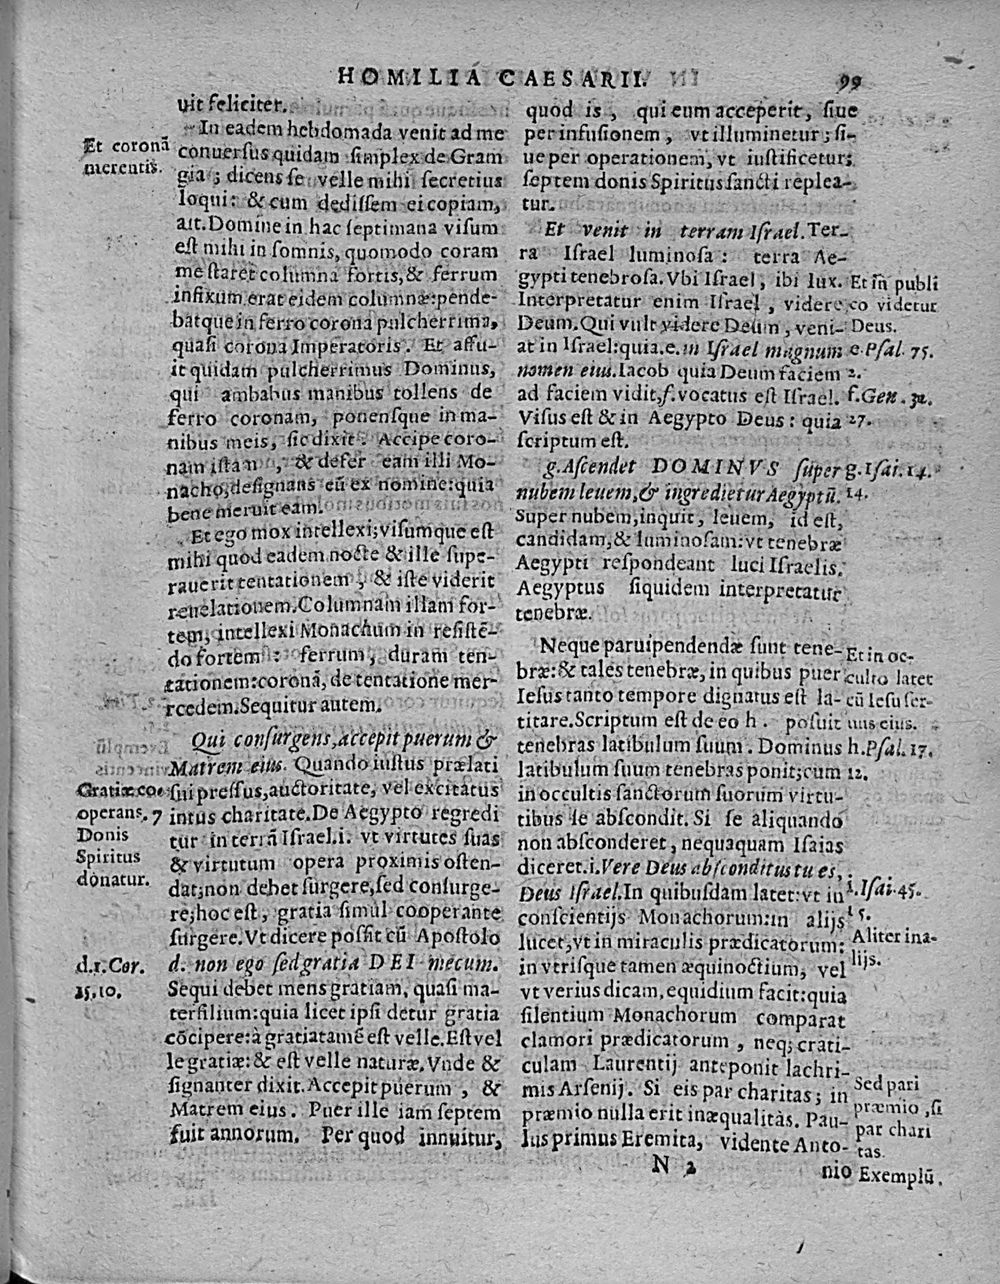 HOMILIA CAESARII. 99
uit feliciter.
In eadem hebdomada venit ad me
conuersus quidam simplex de Gram
gia; dicens se velle mihi secretius
loqui: & cum dedissem ei copiam,
ait. Domine in hac septimana visum
est mihi in somnis, quomodo coram
me staret columna fortis, & ferrum
infixum erat eidem columnæ: pende-
batque in ferro corona pulcherrima,
quasi corona Imperatoris. Et affu-
it quidam pulcherrimus Dominus,
qui ambabus manibus tollens de
ferro coronam, ponensque in ma-
nibus meis, sic dixit. Accipe coro-
nam istam, & defer eam illi Mo-
nacho, designans eũ ex nomine: quia
bene meruit eam.
Et ego mox intellexi; visumque est
mihi quod eadem nocte & ille supe-
rauerit tentationem, & iste viderit
reuelationem. Columnam illam for-
tem, intellexi Monachum in resistẽ-
do fortem: ferrum, duram ten-
tationem: coronã, de tentatione mer-
rcedem. Sequitur autem.
Qui consurgens, accepit puerum &
Matrem eius. Quando iustus prælati
sui pressus, auctoritate, vel excitatus
intus charitate. De Aegypto regredi
tur in terrã Israel. i. vt virtutes suas
& virtutum opera proximis osten-
dat; non debet surgere, sed consurge-
re; hoc est, gratia simul cooperante
surgere. Vt dicere possit cũ Apostolo
d. non ego sed gratia DEI mecum.
Sequi debet mens gratiam, quasi ma-
ter filium: quia licet ipsi detur gratia
cõcipere: à gratia tamẽ est velle. Est vel
le gratiæ: & est velle naturæ. Vnde &
signanter dixit. Accepit puerum, &
Matrem eius. Puer ille iam septem
fuit annorum. Per quod innuitur,
Et coronã
merentis.
Gratiæ coe
operans. 7
Donis
Spiritus
donatur.
d. 1. Cor.
15. 10.
quod is, qui eum acceperit, siue
per infusionem, vt illuminetur; si-
ue per operationem, vt iustificetur;
septem donis Spiritus sancti replea-
tur.
Et venit in terram Israel. Ter-
ra Israel luminosa: terra Ae-
gypti tenebrosa. Vbi Israel, ibi lux.
Interpretatur enim Israel, videre
Deum. Qui vult videre Deum, veni-
at in Israel: quia. e. in Israel magnum
nomen eius. Iacob quia Deum faciem
ad faciem vidit, f. vocatus est Israel.
Visus est & in Aegypto Deus: quia
scriptum est.
g. Ascendet DOMINVS super
nubem leuem, & ingredietur Aegyptũ.
Super nubem, inquit, leuem, id est,
candidam, & luminosam: vt tenebræ
Aegypti respondeant luci Israelis.
Aegyptus siquidem interpretatur
tenebræ.
Neque paruipendendæ sunt tene-
bræ: & tales tenebræ, in quibus puer
Iesus tanto tempore dignatus est la-
titare. Scriptum est de eo h. posuit
tenebras latibulum suum. Dominus
latibulum suum tenebras ponit; cum
in occultis sanctorum suorum virtu-
tibus se abscondit. Si se aliquando
non absconderet, nequaquam Isaias
diceret. i. Vere Deus absconditus tu es,
Deus Israel. In quibusdam latet: vt in
conscientijs Monachorum: in alijs
lucet, vt in miraculis prædicatorum:
in vtrisque tamen æquinoctium, vel
vt verius dicam, equidium facit: quia
silentium Monachorum comparat
clamori prædicatorum, neq; crati-
culam Laurentij anteponit lachri-
mis Arsenij. Si eis par charitas; in
præmio nulla erit inæqualitas. Pau-
lus primus Eremita, vidente Anto-
N 2 nio
Et iñ publi
co videtur
Deus.
e. Psal. 75.
2.
f. Gen. 32.
27.
g. Isai. 14.
14.
Et in oc-
culto latet
cũ Iesu ser-
uus eius.
h. Psal. 17.
12.
i. Isai. 45.
15.
Aliter in a-
lijs.
Sed pari
præmio, si
par chari
tas.
Exemplũ.